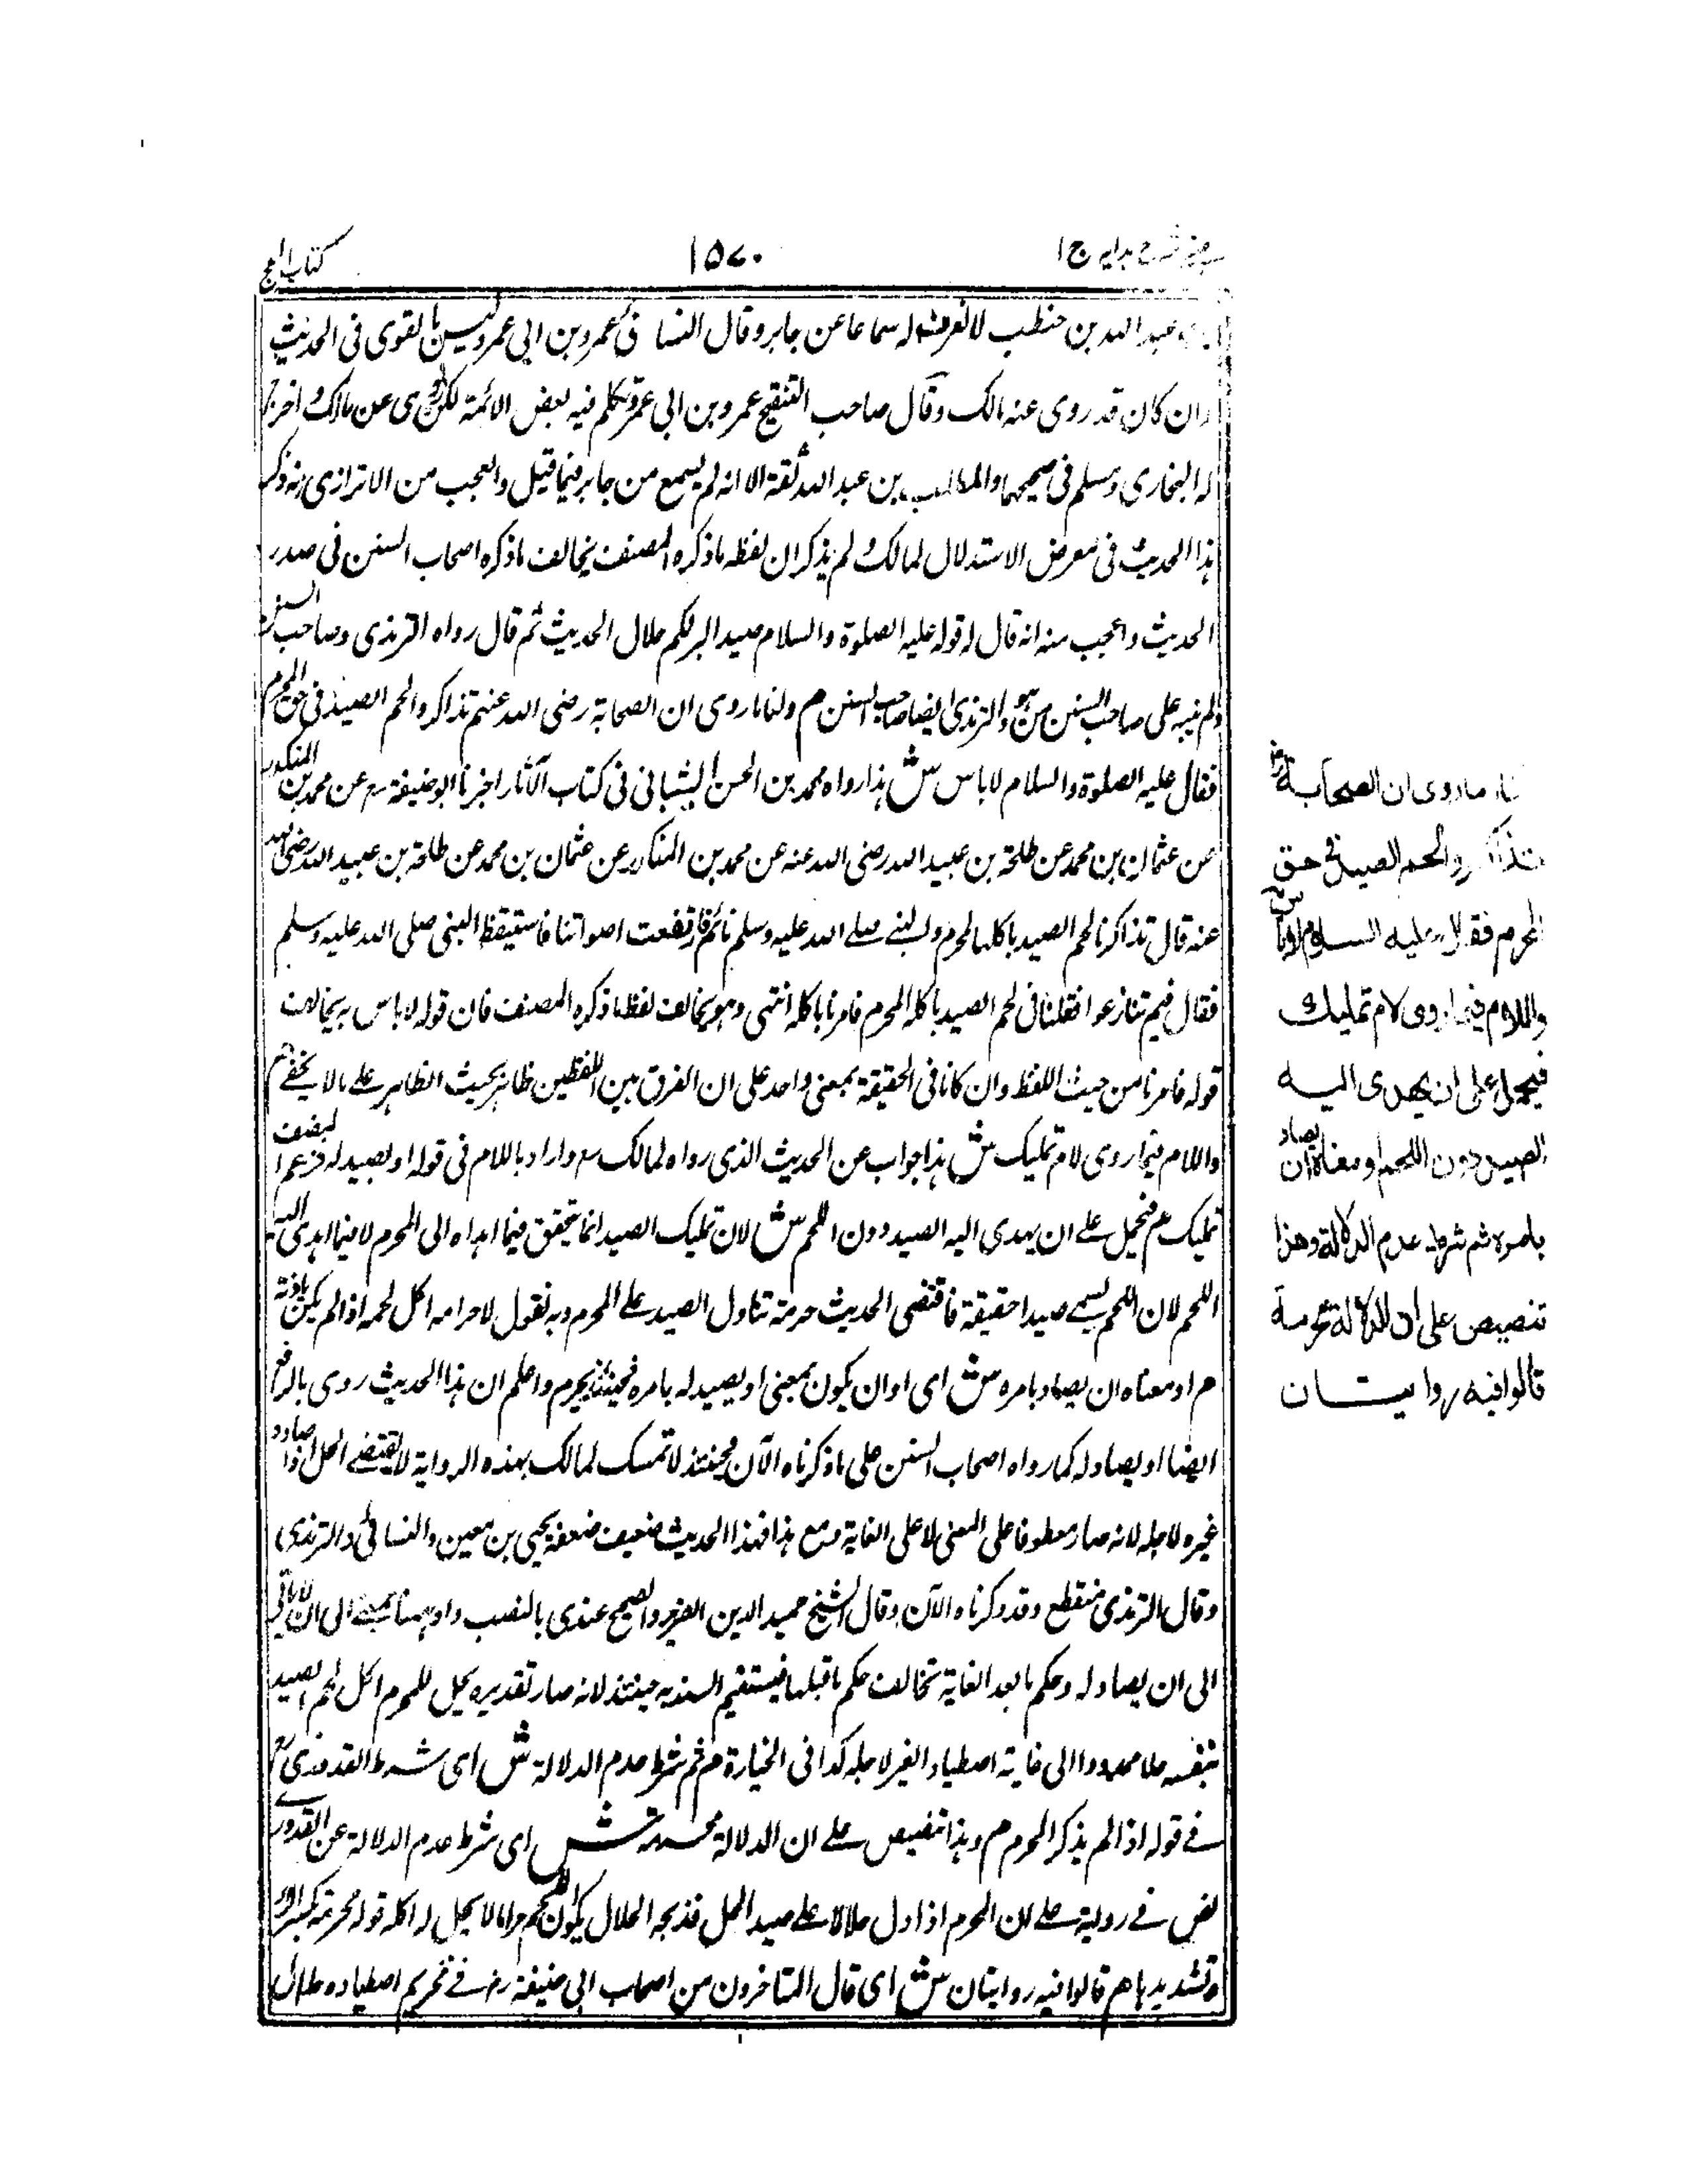 عینی شرح ہدایہ ج ا
۱۵۷۰
کتاب الحج
عبد الله بن حنطب لا نعرف له سماعا عن جابر وقال النسائی عمرو بن ابی عمرو لیس بالقوی فی الحدیث
وان کان قد روی عنه مالک وقال صاحب التنقیح عمرو بن ابی عمرو تکلم فیه بعض الائمة لکن روی عن مالک واخرج
له البخاری ومسلم فی صحیحهما والمطلب بن عبد الله ثقة الا انه لم یسمع من جابر فیما قیل والعجب من الاترازی انه ذکر
هذا الحدیث فی معرض الاستدلال لمالک ولم یذکر ان لفظه ما ذکره المصنف یخالف ما ذکره اصحاب السنن فی صدر
الحدیث واعجب منه انه قال له قوله علیه الصلوة والسلام صید البر لکم حلال الحدیث ثم قال رواه الترمذی وصاحب السنن
ولم ینبه علی صاحب السنن من هو والترمذی ایضا صاحب السنن م ولنا ما روی ان الصحابة رضی الله عنهم تذاکروا لحم الصید فی حق المحرم
فقال علیه الصلوة والسلام لا باس ش هذا رواه محمد بن الحسن الشیبانی فی کتاب الآثار اخبرنا ابو حنیفة رح عن محمد بن المنکدر
عن عثمان بن محمد عن طلحة بن عبید الله رضی الله عنه عن محمد بن المنکدر عن عثمان بن محمد عن طلحة بن عبید الله رضی الله
عنه قال تذاکرنا لحم الصید یاکله المحرم والنبی صلے الله علیه وسلم نائم فارتفعت اصواتنا فاستیقظ النبی صلی الله علیه وسلم
فقال فیم تنازعوا فقلنا فی لحم الصید یاکله المحرم فامرنا باکله انتهی وهو یخالف لفظ ما ذکره المصنف فان قوله لا باس به یخالف
قوله فامرنا من حیث اللفظ وان کانا فی الحقیقة بمعنی واحد علی ان الفرق بین اللفظین ظاهر بحیث الظاهر علے ما لا یخفے م
واللام فیما روی لام تملیک ش هذا جواب عن الحدیث الذی رواه لمالک رح واراد باللام فی قوله او یصید له فزعم المصنف
تملیک م فیحمل علے ان یهدی الیه الصید دون اللحم ش لان تملیک الصید انما یتحقق فیما اهداه الی المحرم لا فیما اهدی الیه
اللحم لان اللحم لا یسمے صیدا حقیقة فاقتضی الحدیث حرمة تناول الصید علے المحرم وبه نقول لا حرامه اکل لحمه اذا لم یکن باذنه
م او معناه ان یصاد بامره ش ای او ان یکون بمعنی او یصید له بامره فحینئذ یحرم واعلم ان هذا الحدیث روی بالرفع
ایضا او یصاد له کما رواه اصحاب السنن علی ما ذکرناه الآن فحینئذ لا تمسک لمالک بهذه الروایة لا یقتضے الحل اذا صاده
غیره لاجله لانه صار معطوفا علی المعنی لا علی الغایة ومع هذا فهذا الحدیث ضعیف ضعفه یحیی بن معین والنسائی والترمذی
وقال الترمذی منقطع وقد ذکرناه الآن وقال الشیخ حمید الدین الضریر والصحیح عندی بالنصب واو ههنا بمعنے الی ان لا یاتی
الی ان یصاد له وحکم ما بعد الغایة تخالف حکم ما قبلها فیستقیم السند به حینئذ لانه صار تقدیره یحل للمحرم اکل لحم الصید
بنفسه حلا ممدودا الی غایة اصطیاد الغیر لاجله کذا فی الخبازیة م ثم شرط عدم الدلالة ش ای شرط القدوری رح
فے قوله اذا لم یذکر المحرم م وهذا تنصیص علے ان الدلالة محرمة ش ای شرط عدم الدلالة عن القدورے
نص فے روایة علے ان المحرم اذا دل حلالا علے صید الحل فذبحه الحلال یکون اللحم حراما لا یحل له اکله قوله محرمة بکسر الراء
وتشدیدها م قالوا فیه روایتان ش ای قال المتاخرون من اصحاب ابی حنیفة رح فے تحریم اصطیاده حلال
ما روی ان الصحابة رض
تذاکروا لحم الصید فی حق
المحرم فقال علیه السلام لا باس به
واللام فیما روی لام تملیک
فیحمل علی ان یهدی الیه
الصید دون اللحم او معناه ان یصاد
بامره ثم شرط عدم الدلالة وهذا
تنصیص علی ان الدلالة محرمة
قالوا فیه روایتان